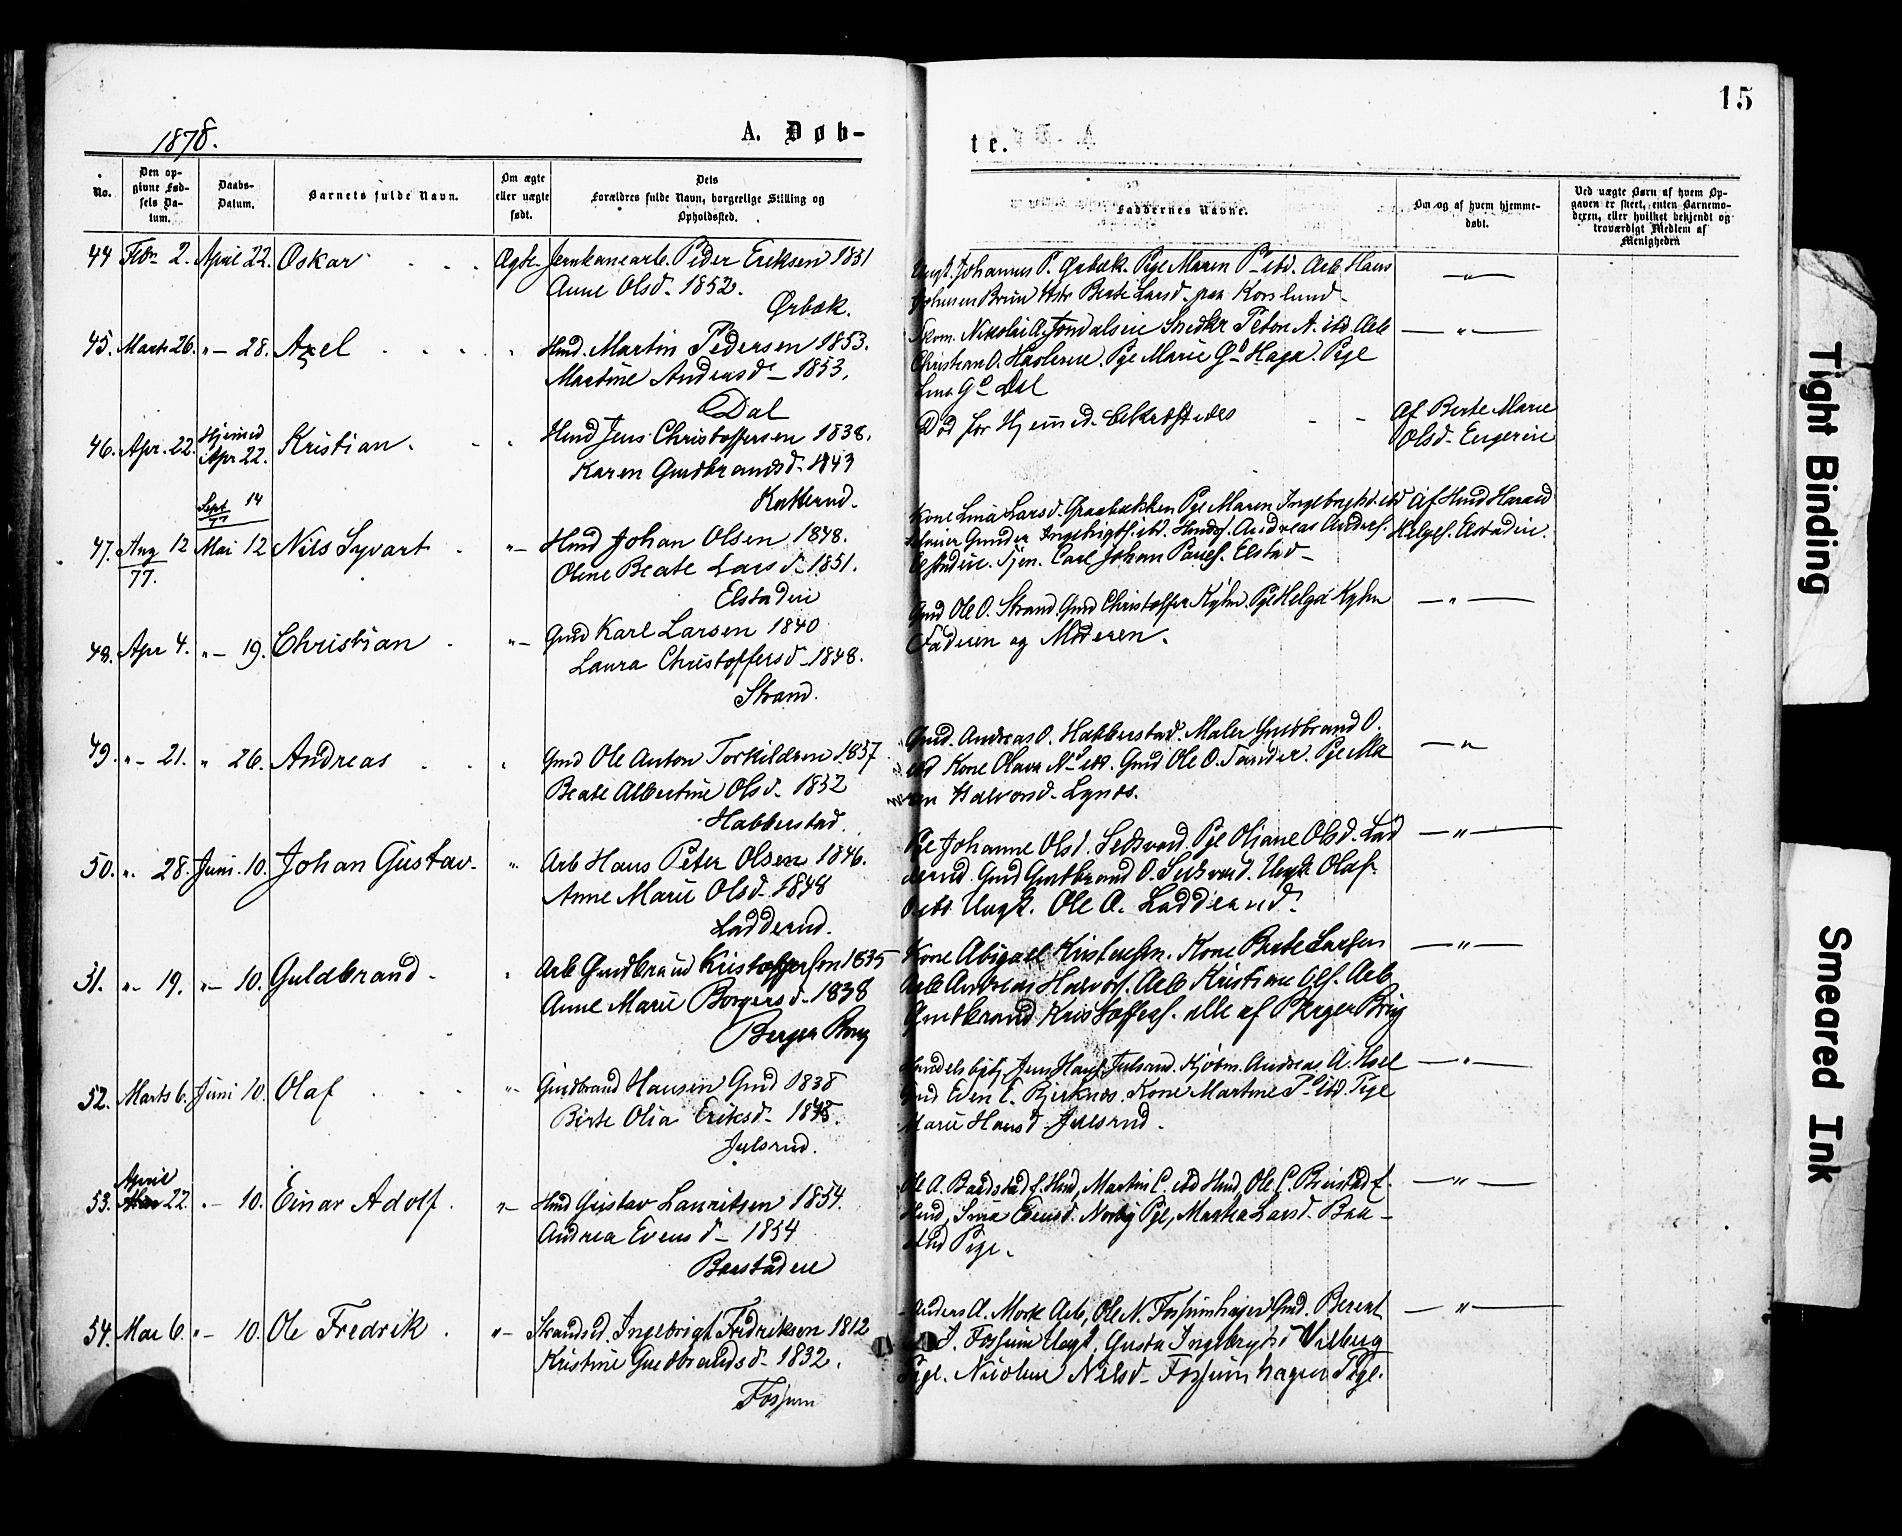 15
1878.
A. Døb-
te.
No.
Den op-
givne Fød-
sels Da-
tum.
Daabs-
Datum.
Barnets fulde Navn.
Om ægte
eller uægte
født.
Dets
Forældres fulde Navn, borgerlige Stilling og
Opholdssted.
Faddernes Navne.
Om og af hvem hjemme-
døbt.
Ved uægte Børn af hvem Op-
gaven er skeet, enten Barnemo-
deren, eller hvilket bekjendt og
troværdigt Medlem af
Menigheden
44 Febr 2. April 22. Oskar Ægte Jernbanearb. Peder Eriksen 1851
Anne Olsd. 1852.
Ørbæk.
Ungk. Johannes P. Ørbæk. Pige Maren P- ibd. Arb. Hans
Johnsen Brun Hstr Berte Larsd. paa Korslund.
—"—
45. Marts 26. "— 28. Axel Hmd. Martin Pedersen 1853.
Martine Andreasd- 1853.
Dal
Skom. Nikolai A. Jondalseie Snedker Peter A. ibd. Arb
Christian O. Haslerene. Pge Marie Gd Haga. Pige
Lina Gd Dal
—"—
46. Apr. 22. Hjemmed Apr 22. Kristian. Hmd Jens Christoffersen 1838.
Karen Gudbrandsd. 1843
Katterud.
Død før Hjemmed. bekræftedes
Af Berte Marie
Olsd. Engerin
47. Aug 12 77. Sept 14 77 Mai 12 Nils Syvart "— Hmd Johan Olsen 1848.
Oline Beate Larsd. 1851.
Elstadeie
Kone Lina Larsd. Graabækken Pge Maren Ingebrigtsd. ibd
Gunder Ingebrigts. ibd. Andreas Anders.
Elstadeie. Tjen. Carl Johan Pauls. Elstad—
Af Hmd Harald
Helges. Elstadeie.
48. Apr 4. "— 19. Christian "— Gmd Karl Larsen 1840
Laura Christoffersd. 1848.
Strand.
Gmd Ole O. Strand Gmd Christoffer Kyhn Pge Helga Kyhn
Faderen og Moderen.
—"—
49. "— 21. " 26. Andreas Gmd Ole Anton Torkildsen 1857
Beate Albertine Olsd. 1852
Habberstad.
Gmd. Andreas O. Habberstad. Maler Guldbrand O.
ibd Kone Olava Nd ibd. Gmd Ole O. Tander. Pge Ma
ren Halvorsd. Lynæs.
—"
50. ". 28. Juni 10. Johan Gustav. " Arb Hans Peter Olsen 1846.
Anne Marie Olsd. 1848
Ladderud.
Pge Johanne Olsd. Seterud. Pge Oliane Olsd. Lad
derud. Gmd Gudbrand O. Ungk. Olaf
O ibd. Ungk. Ole A. Ladderud.
—"—
51. "— 19. "— 10. Guldbrand. Arb Gundbrand Kristofferson 1835
Anne Marie Borgersd. 1838
Berger Brug
Kone Abigael Kristensen. Kone Berte Larsen
Arb Andreas Halvors. Arb Kristian Ols. Arb
Gudbrand Kristoffers. alle af Berger Brug
—"—
52. Marts 6. Juni 10. Olaf "— Gudbrand Hansen Gmd 1838
Birte Olia Eriksd. 1848.
Julsrud.
Handelsbetj. Jens Hans. Julsrud. Kjøbm. Andreas A. Hoel
Gmd Even E. Bjerknæs. Kone Martine Pd ibd. Pige
Marie Hansd. Julsrud.
—"—
53. April 22. "— 10. Einar Adolf. "— Hmd Gustav Lauritsen 1854.
Andrea Evensd— 1854
Baastadeie
Ole A. Baastad f. Hmd, Martin C. ibd Hmd, Ole C.
Hmd, Evensd. Norby Pge, Martea Larsd. Baa—
stad Pige.
—"—
54. Mai 6. "— 10. Ole Fredrik. "— Strandsd. Ingebrigt Fredriksen 1812
Kristine Guldbrandsd. 1832.
Fossum
Anders A. Mork Arb, Ole N. Fossumhagen Gmd. Berent
J. Fossum Ungk, Gusta Ingebrigtsd Vilberg
Pige. Nicoline Nilsd. Fossumhagen Pige.
—"—
Tight Binding
Smeared Ink